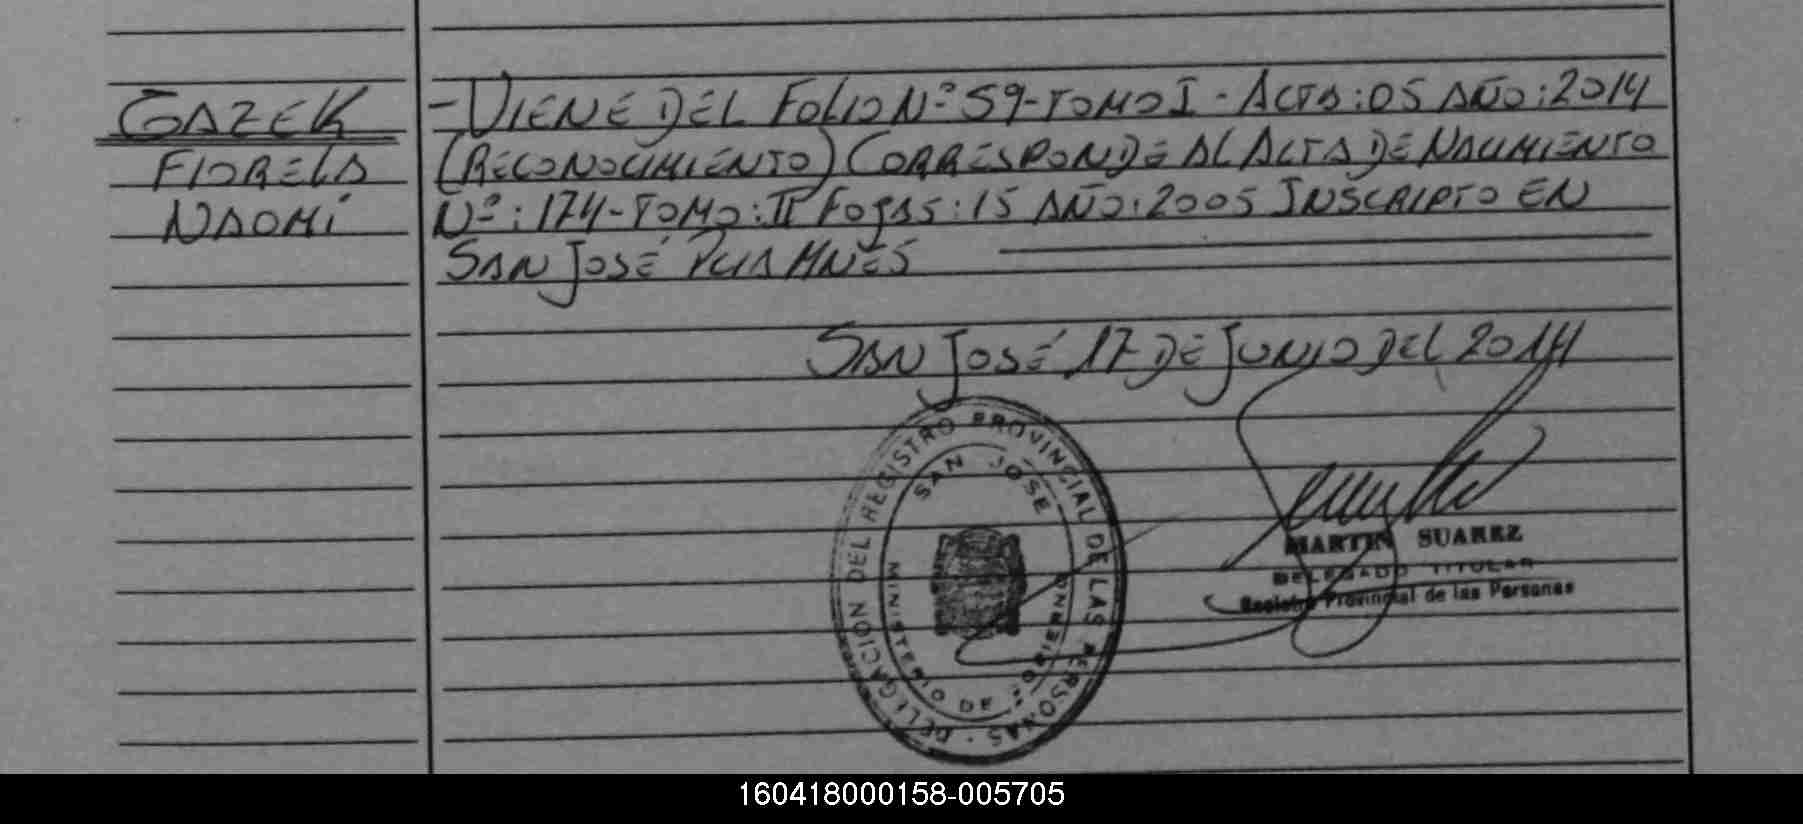 GAZEK
FIORELA
NAOMÍ
-VIENE DEL FOLIO Nº 59-TOMO I - ACTA: 05 AÑO: 2014
(RECONOCIMIENTO) CORRESPONDE AL ACTA DE NACIMIENTO
Nº: 174-TOMO: II FOJAS: 15 AÑO: 2005 INSCRIPTO EN
SAN JOSÉ PCIA MNES
SAN JOSÉ 17 DE JUNIO DEL 2014
DELEGACIÓN DEL REGISTRO PROVINCIAL DE LAS PERSONAS
SAN JOSE
MINISTERIO DE GOBIERNO
MARTIN SUAREZ
DELEGADO TITULAR
Registro Provincial de las Personas
160418000158-005705